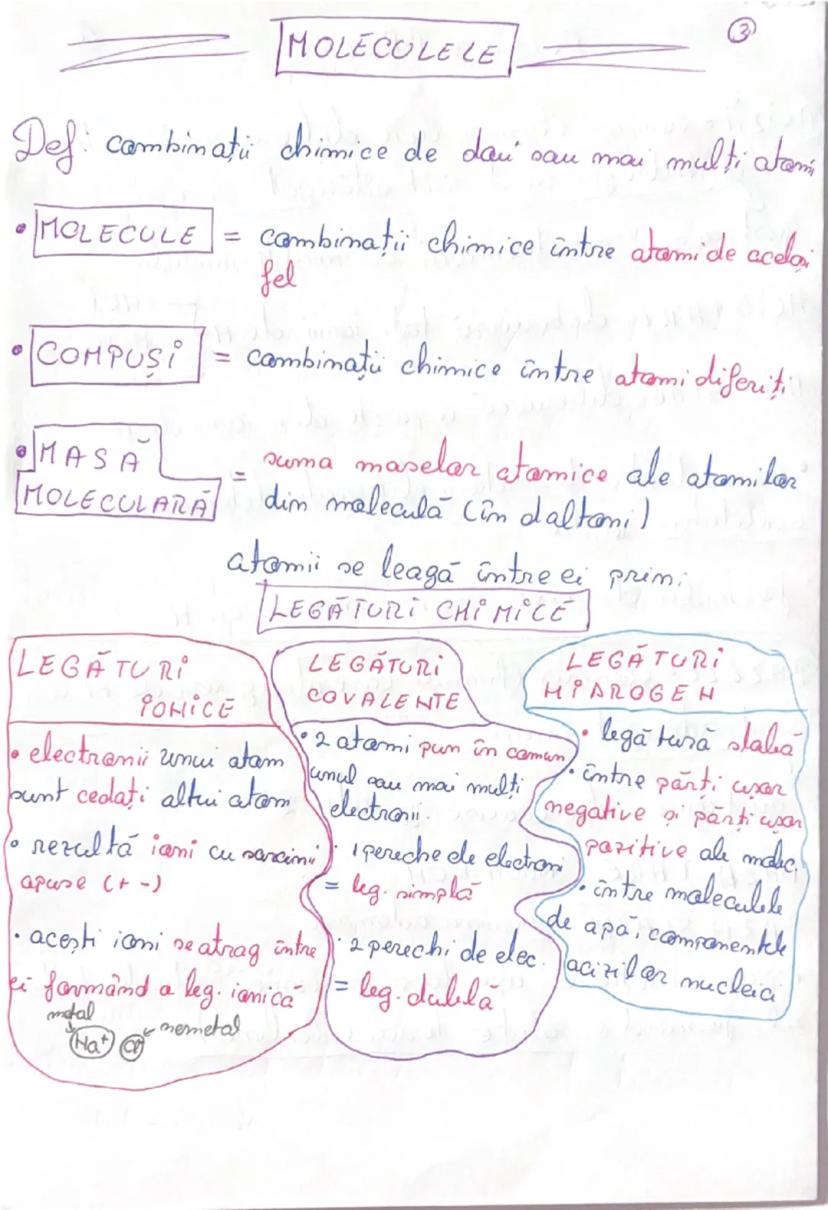 MOLECULELE
3
Def: combinații chimice de doui sau mai mulți atomi
• MOLECULE = combinații chimice între atomi de același
fel
• COMPUȘI = combinații chimice între atomi diferiți
• MASĂ
MOLECULARĂ = suma maselor atomice, ale atomilor
din moleculă (în daltoni)
atomii se leagă între ei prin:
LEGĂTURI CHIMICE
LEGĂTURI
IONICE
• electronii unui atom
sunt cedați altui atom
• rezultă ioni cu sarcini
opuse (+ -)
• acești ioni se atrag între
ei formând o leg. ionica
metal
nemetal
Na+ Cl-
LEGĂTURI
COVALENTE
• 2 atomi pun în comun
unul sau mai mulți
electroni.
• 1 pereche de electroni
= leg. simplă
• 2 perechi de elec.
= leg. dubla
LEGĂTURI
HIDROGEN
• legătură slabă
• între părți ușor
negative și părți ușor
pozitive ale molec.
• între moleculele
de apă, componentele
acizilor nucleici